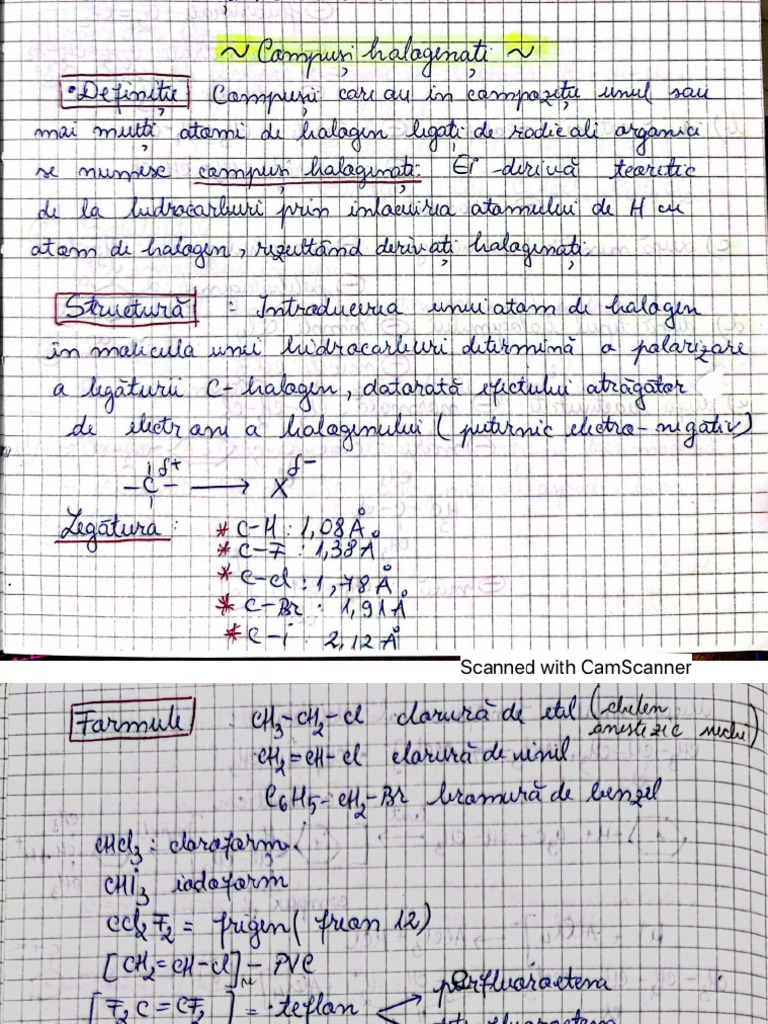 ~ Compuși halogenați ~
• Definiție Compușii care au în compoziție unul sau
mai mulți atomi de halogen legați de radicali organici
se numesc compuși halogenați. Ei derivă teoretic
de la hidrocarburi prin inlocuirea atomului de H cu
atom de halogen, rezultând derivați halogenați.
Structură : Introducerea unui atom de halogen
în molecula unei hidrocarburi determină o polarizare
a legăturii C-halogen, datorată efectului atrăgător
de electroni a halogenului (puternic electro-negativ)
-C- δ+ → X δ-
Legătura : * C-H : 1,08 Å
* C-F : 1,38 Å
* C-Cl : 1,78 Å
* C-Br : 1,91 Å
* C-i : 2,12 Å
Scanned with CamScanner
Formule : CH3-CH2-Cl clorură de etil (chelen
anestezic vechi)
CH2=CH-Cl clorură de vinil
C6H5-CH2-Br bromură de benzel
CHCl3 : cloroform
CHi3 iodoform
CCl2F2 = frigen (freon 12)
[CH2=CH-Cl]n - PVC
[F2C=CF2] = teflon perfluoroetena